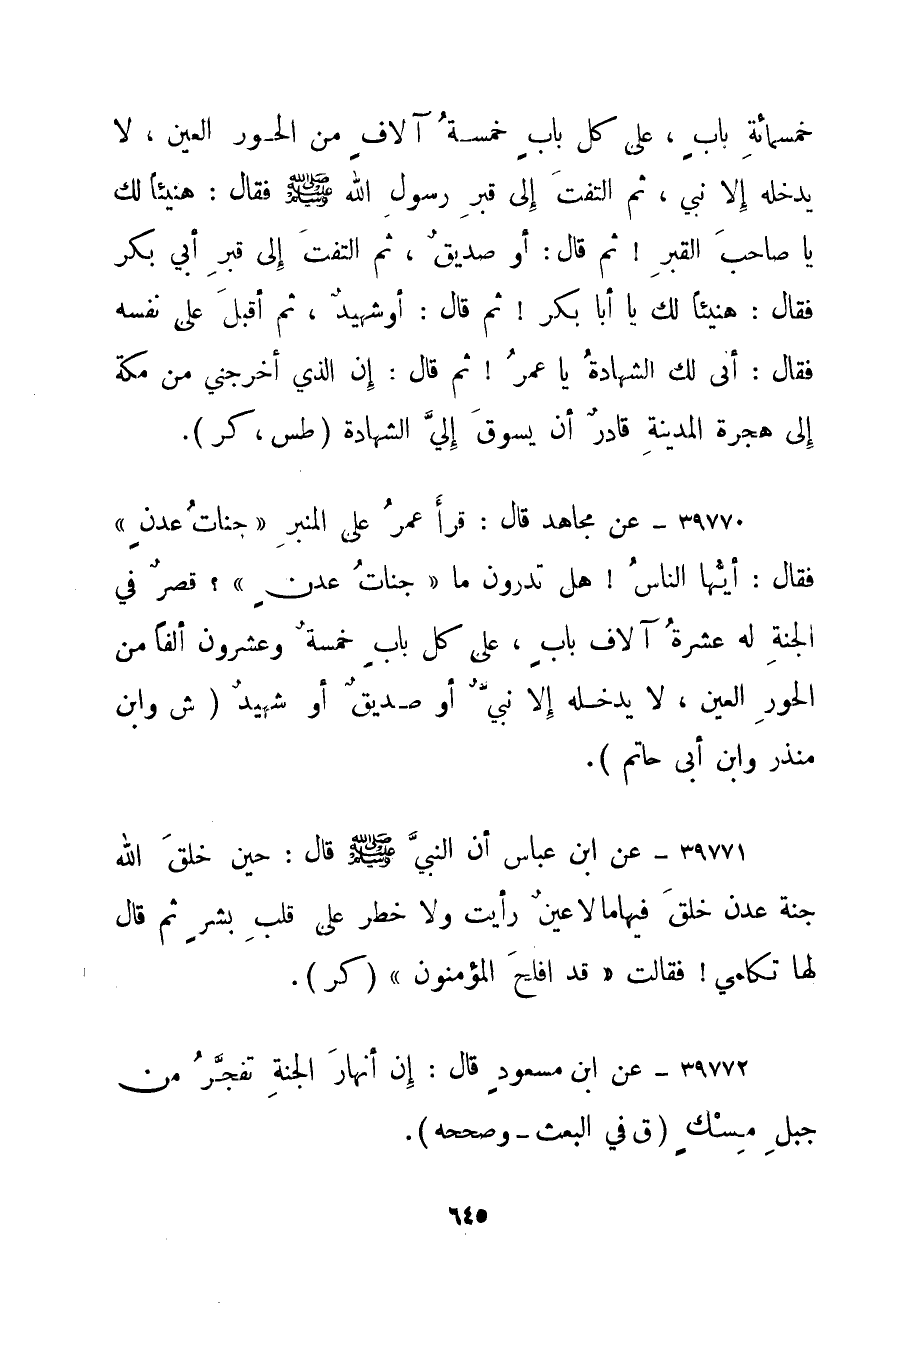 خمسمائةِ بابٍ ، على كل بابٍ خمسةُ آلافٍ من الحور العين ، لا
يدخله إلا نبي ، ثم التفتَ إلى قبرِ رسولِ الله ﷺ فقال : هنيئاً لك
يا صاحبَ القبرِ ! ثم قال : أو صديقٌ ، ثم التفتَ إلى قبرِ أبي بكر
فقال : هنيئاً لك يا أبا بكر ! ثم قال : أوشهيدٌ ، ثم أقبلَ على نفسه
فقال : أنى لك الشهادةُ يا عمرُ ! ثم قال : إن الذي أخرجني من مكة
إلى هجرة المدينةِ قادرٌ أن يسوقَ إليَّ الشهادة ( طس ، كر ) .
٣٩٧٧٠ - عن مجاهد قال : قرأَ عمرُ على المنبرِ « جناتُ عدنٍ »
فقال : أيُّها الناسُ ! هل تدرون ما « جناتُ عدنٍ » ؟ قصرٌ في
الجنةِ له عشرةُ آلاف بابٍ ، على كل بابٍ خمسةٌ وعشرون ألفاً من
الحورِ العين ، لا يدخله إلا نبيٌّ أو صديقٌ أو شهيدٌ ( ش وابن
منذر وابن أبى حاتم ) .
٣٩٧٧١ - عن ابن عباس أن النبيَّ ﷺ قال : حين خلقَ الله
جنة عدن خلقَ فيهامالاعينٌ رأيت ولا خطر على قلبِ بشرٍ ثم قال
لها تكلمي ! فقالت « قد افلحَ المؤمنون » ( كر ) .
٣٩٧٧٢ - عن ابن مسعودٍ قال : إن أنهارَ الجنةِ تفجَّرُ من
جبلِ مِسْكٍ ( ق في البعث - وصححه ) .
٦٤٥